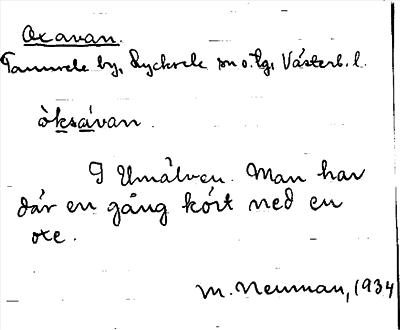 Oxavan.
Tannsele by, Lycksele sn o. tg, Västerb. l.
òksávan.
I Umälven. Man har
där en gång kört ned en
oxe.
M. Neuman, 1934